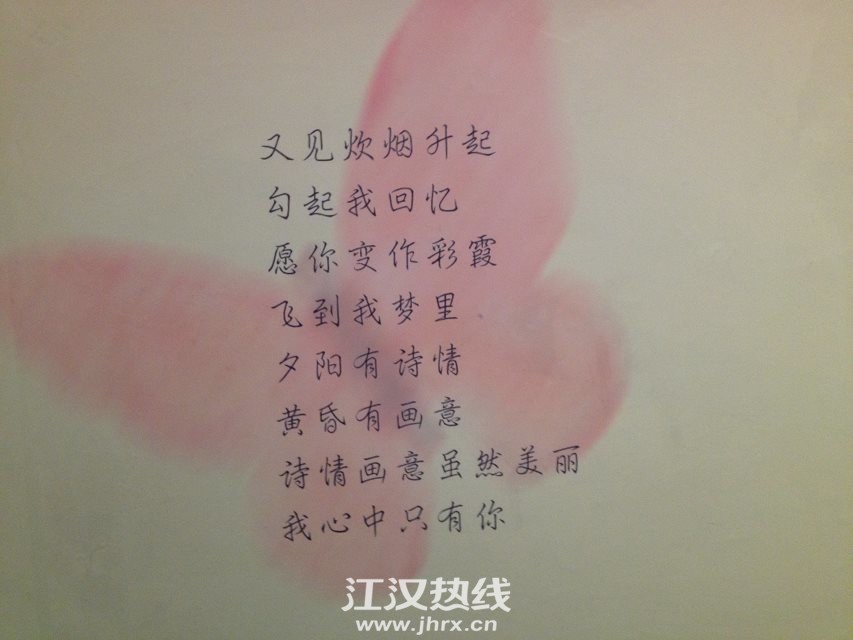 又见炊烟升起
勾起我回忆
愿你变作彩霞
飞到我梦里
夕阳有诗情
黄昏有画意
诗情画意虽然美丽
我心中只有你
江汉热线
www.jhrx.cn